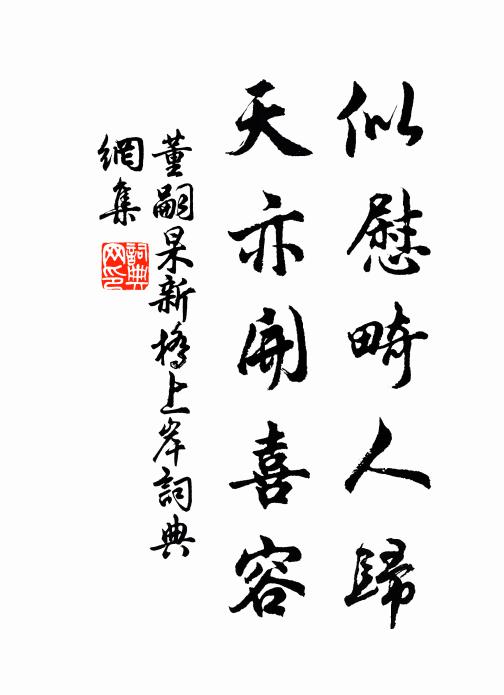 似慰畸人歸
天亦開喜容
董嗣杲新橋上岸詞典
網集
詞典網印